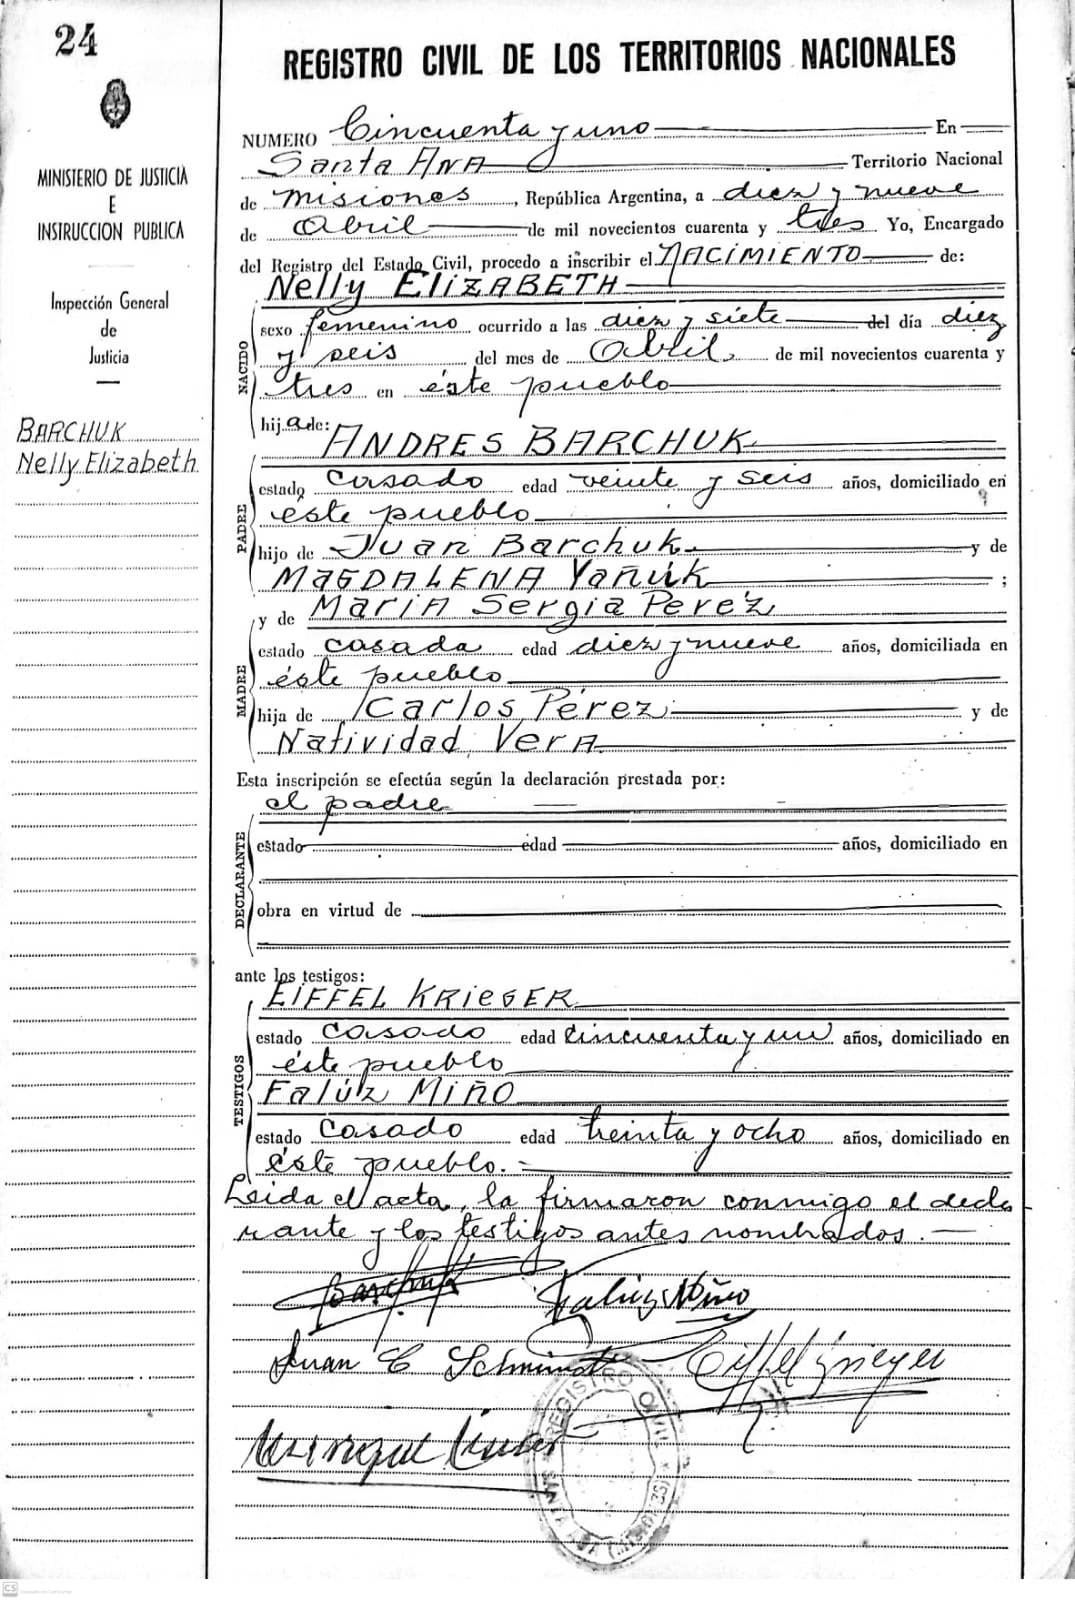 24
MINISTERIO DE JUSTICIA
E
INSTRUCCION PUBLICA
Inspección General
de
Justicia
BARCHUK
Nelly Elizabeth
REGISTRO CIVIL DE LOS TERRITORIOS NACIONALES
NUMERO Cincuenta y uno En
Santa Ana Territorio Nacional
de Misiones, República Argentina, a diez y nueve
de Abril de mil novecientos cuarenta y tres Yo, Encargado
del Registro del Estado Civil, procedo a inscribir el NACIMIENTO de:
Nelly ELIZABETH
NACIDO
sexo femenino ocurrido a las diez y siete del día diez
y seis del mes de Abril de mil novecientos cuarenta y
tres en éste pueblo
hija de:
ANDRES BARCHUK
PADRE
estado casado edad veinte y seis años, domiciliado en
éste pueblo
hijo de Juan Barchuk y de
MAGDALENA Yañúk ;
y de Maria Sergia Peréz
MADRE
estado casada edad diez y nueve años, domiciliada en
éste pueblo
hija de Carlos Pérez y de
Natividad Vera
Esta inscripción se efectúa según la declaración prestada por:
el padre
DECLARANTE
estado edad años, domiciliado en
obra en virtud de
ante los testigos:
EIFFEL KRIEGER
TESTIGOS
estado casado edad cincuenta y un años, domiciliado en
éste pueblo
Falúz Miño
estado casado edad treinta y ocho años, domiciliado en
éste pueblo.=
Leida el acta, la firmaron conmigo el decla
rante y los testigos antes nombrados.
Barchuk Faluz Miño
Juan C Schmindt Eiffel Krieger
REGISTRO CIVIL
SANTA ANA (MISIONES)
CS